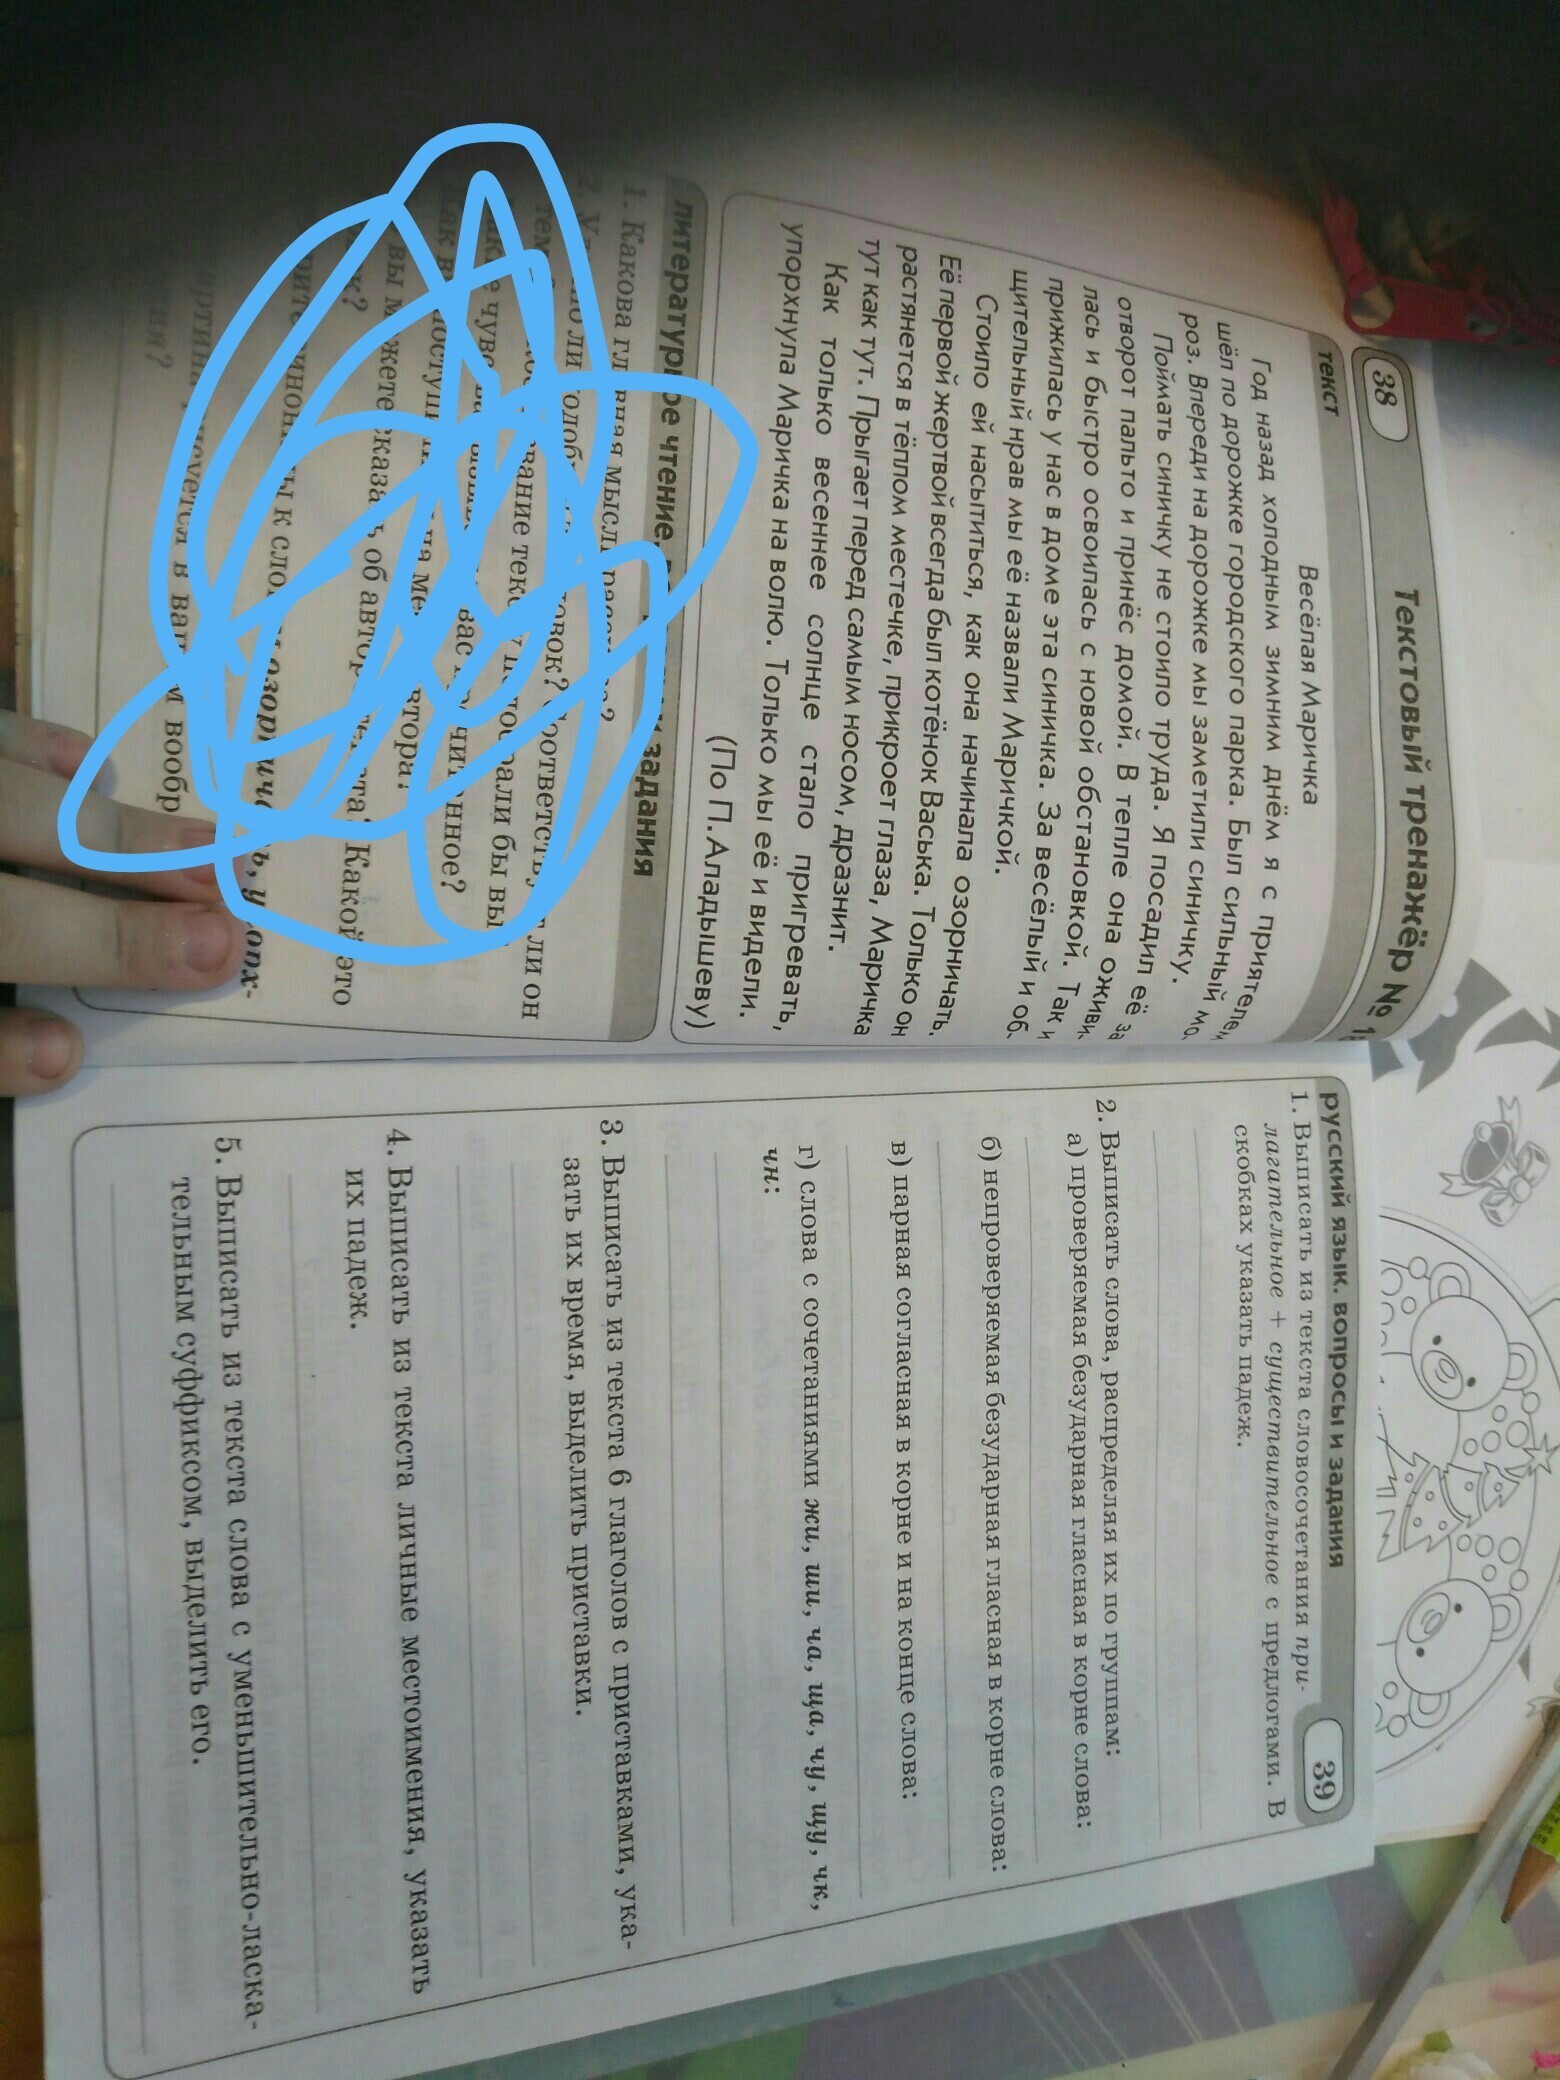 38
Текстовый тренажёр №
текст
Весёлая Маричка
Год назад холодным зимним днём я с приятелем
шёл по дорожке городского парка. Был сильный мо-
роз. Впереди на дорожке мы заметили синичку.
Поймать синичку не стоило труда. Я посадил её за
отворот пальто и принёс домой. В тепле она оживи-
лась и быстро освоилась с новой обстановкой. Так и
прижилась у нас в доме эта синичка. За весёлый и об-
щительный нрав мы её назвали Маричкой.
Стоило ей насытиться, как она начинала озорничать.
Её первой жертвой всегда был котёнок Васька. Только он
растянется в тёплом местечке, прикроет глаза, Маричка
тут как тут. Прыгает перед самым носом, дразнит.
Как только весеннее солнце стало пригревать,
упорхнула Маричка на волю. Только мы её и видели.
(По П.Аладышеву)
литературное чтение. задания
1. Какова главная мысль
ли он
бы вы
автора?
вы можете сказать об авторе Какой это
к
в
русский язык. вопросы и задания
39
1. Выписать из текста словосочетания при-
лагательное + существительное с предлогами. В
скобках указать падеж.
2. Выписать слова, распределяя их по группам:
а) проверяемая безударная гласная в корне слова:
б) непроверяемая безударная гласная в корне слова:
в) парная согласная в корне и на конце слова:
г) слова с сочетаниями жи, ши, ча, ща, чу, щу, чк,
чн:
3. Выписать из текста 6 глаголов с приставками, ука-
зать их время, выделить приставки.
4. Выписать из текста личные местоимения, указать
их падеж.
5. Выписать из текста слова с уменьшительно-ласка-
тельным суффиксом, выделить его.